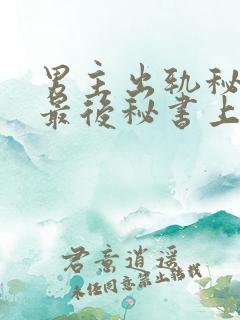 男主出轨秘
最后秘书上
君意逍遥
未经同意禁止转载